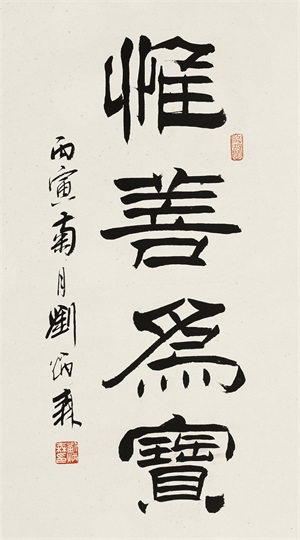 惟善為寶
丙寅菊月劉炳森